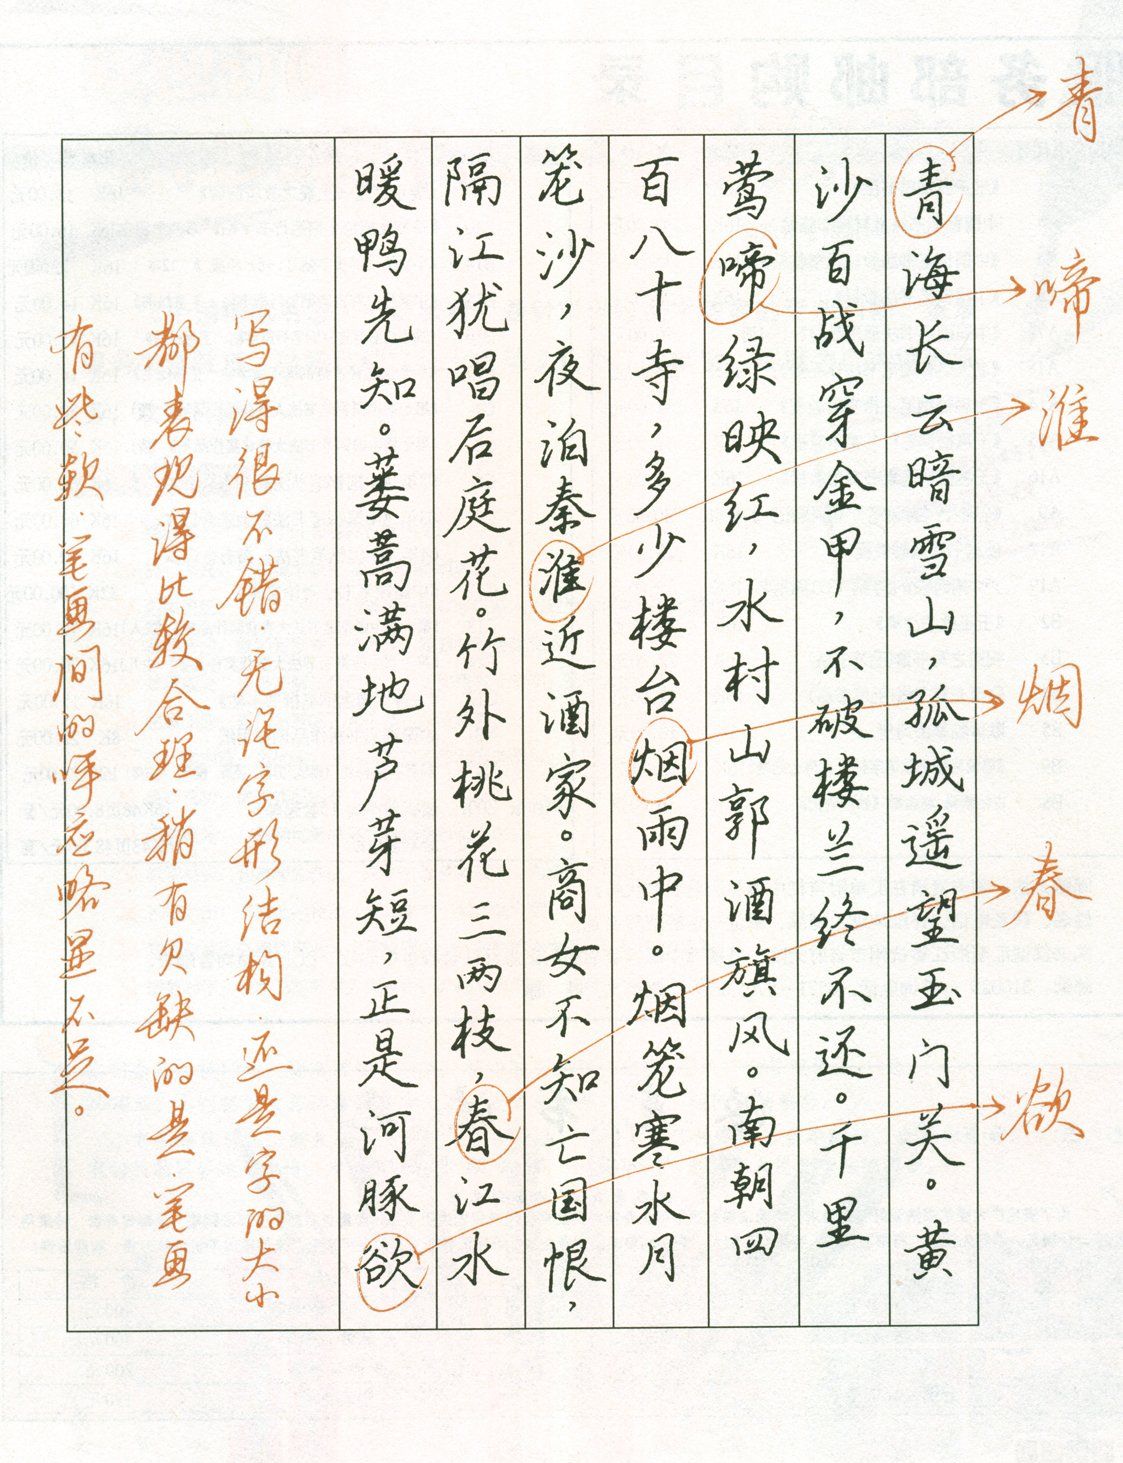 青海长云暗雪山，孤城遥望玉门关。黄
沙百战穿金甲，不破楼兰终不还。千里
莺啼绿映红，水村山郭酒旗风。南朝四
百八十寺，多少楼台烟雨中。烟笼寒水月
笼沙，夜泊秦淮近酒家。商女不知亡国恨，
隔江犹唱后庭花。竹外桃花三两枝，春江水
暖鸭先知。蒌蒿满地芦芽短，正是河豚欲
写得很不错无论字形结构.还是字的大小
都表现得比较合理.稍有欠缺的是.笔画
有些软.笔画间的呼应略显不足。
青
啼
淮
烟
春
欲